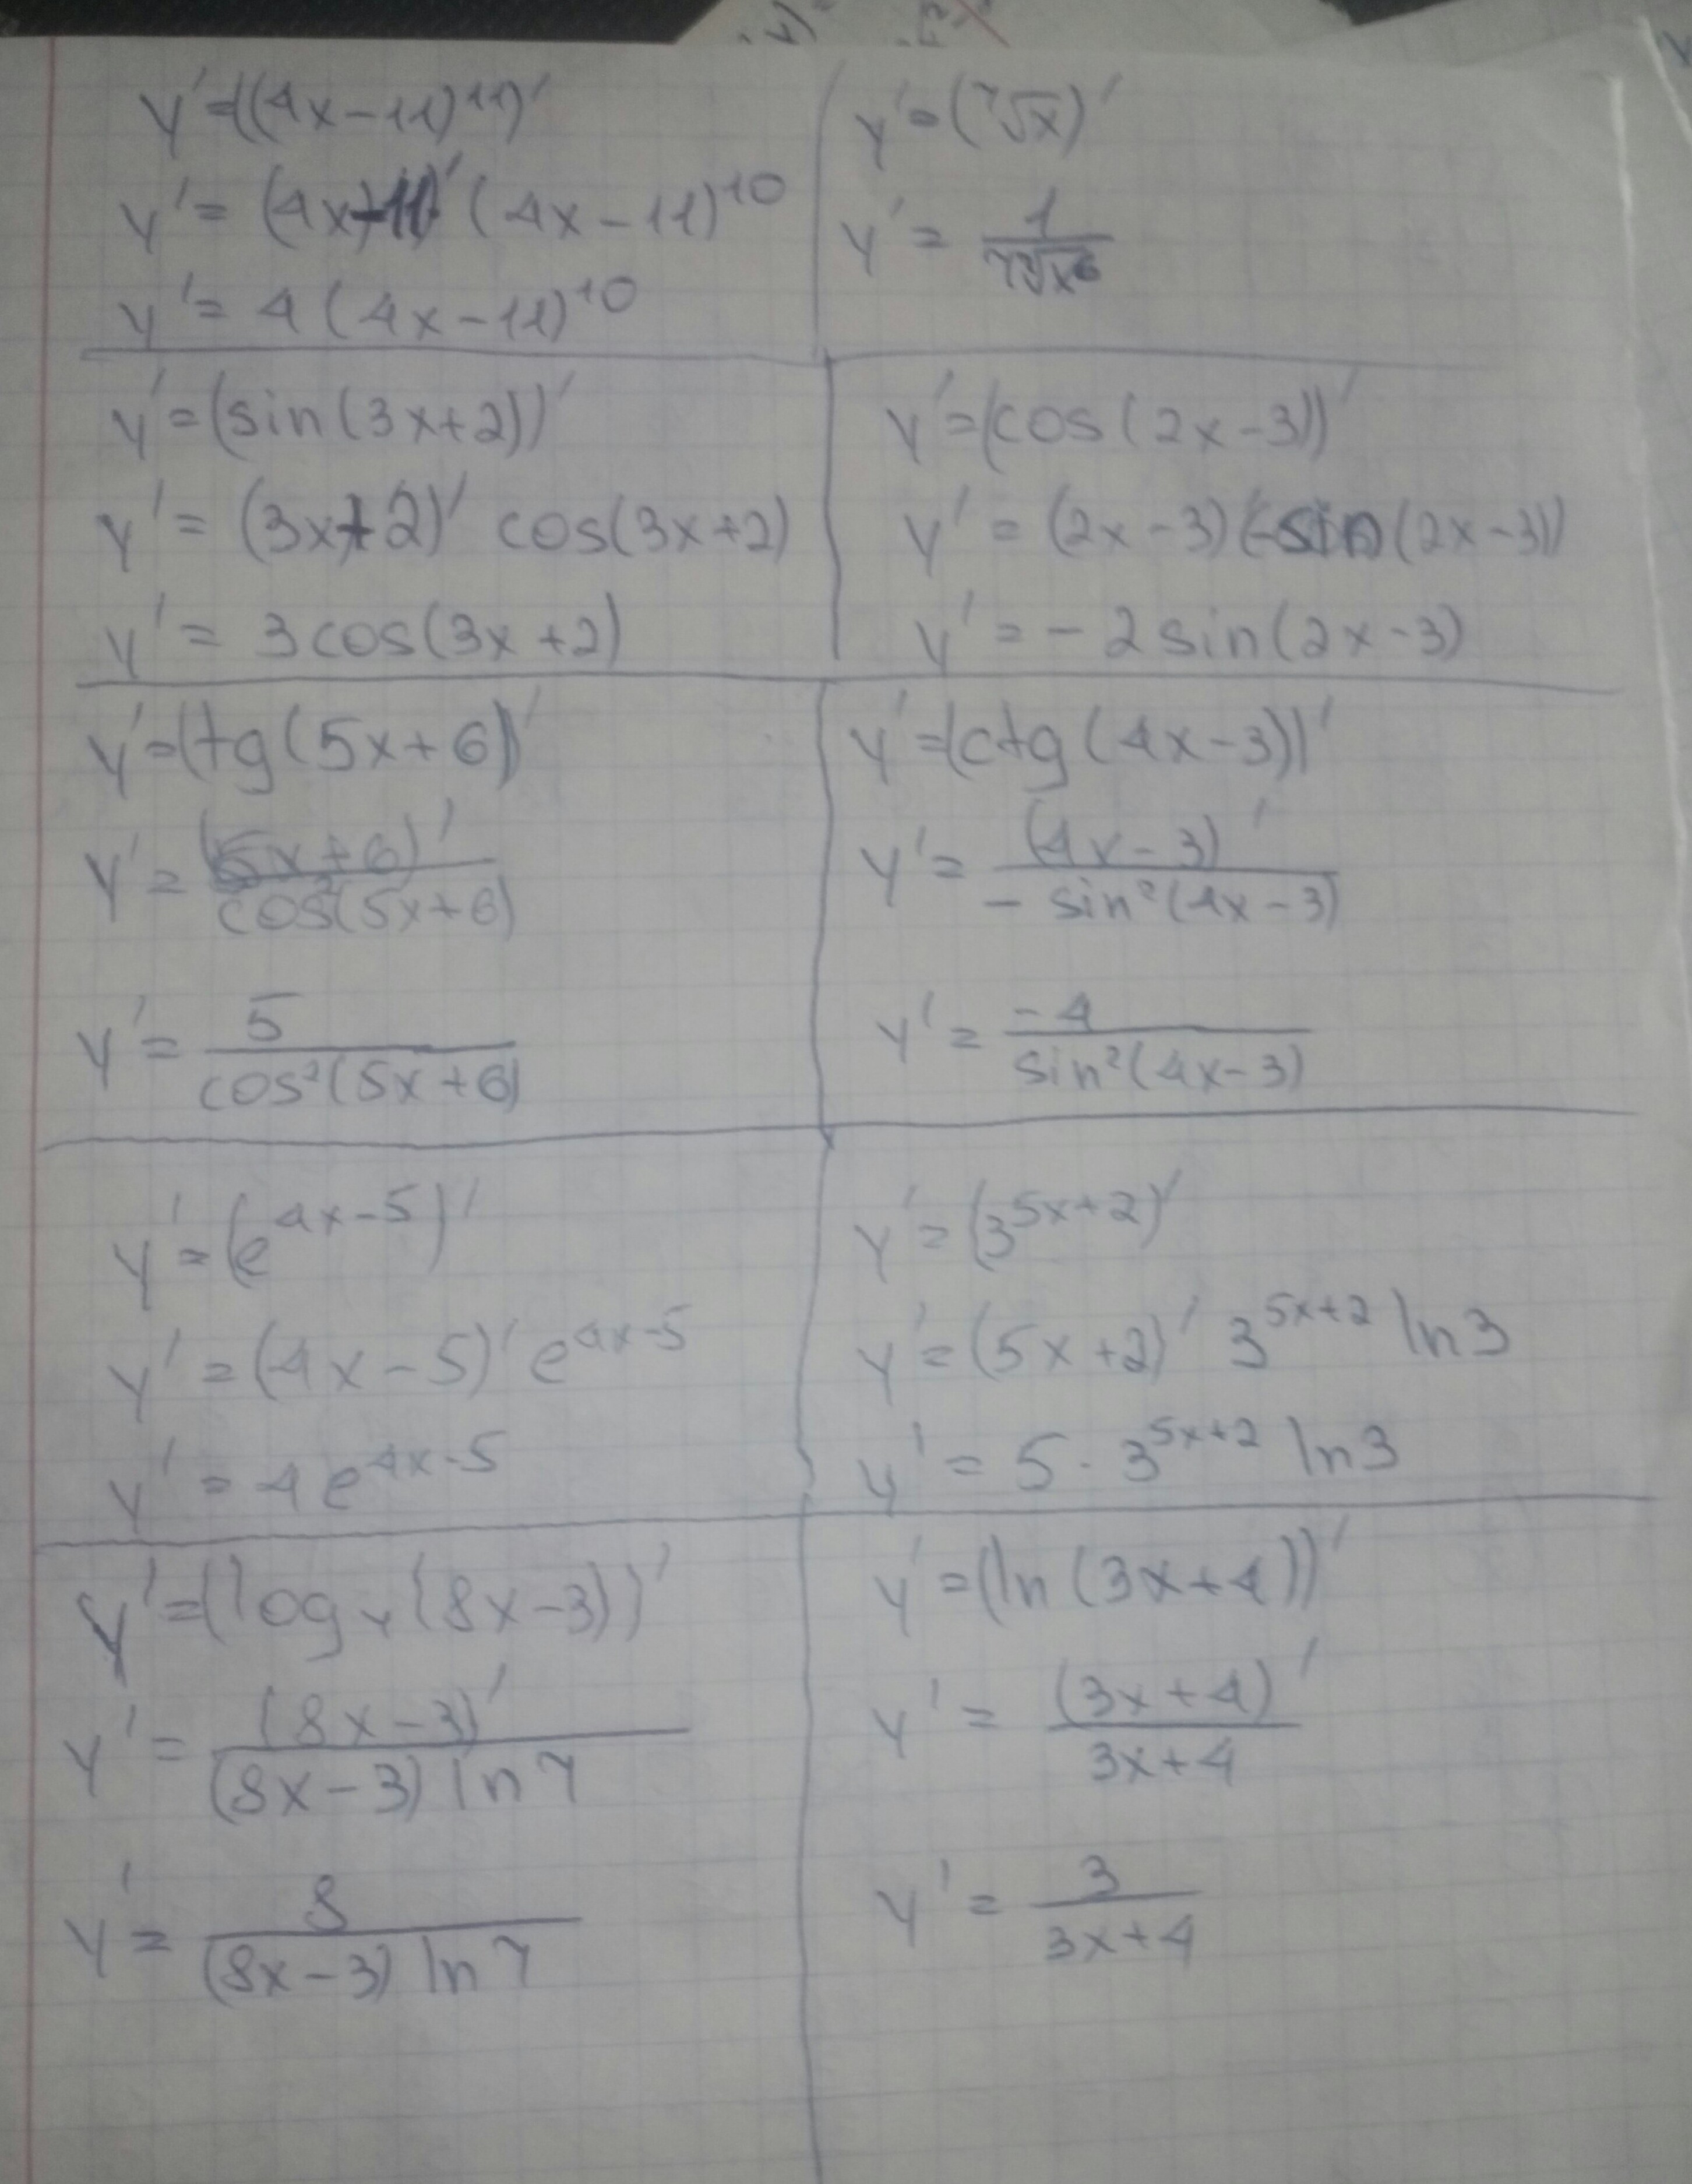 y'=((4x-11)¹¹)'
y'= (4x-11)' (4x-11)¹⁰
y'= 4(4x-11)¹⁰
y'=(⁷√x)'
y'= 1/(7 ⁷√x⁶)
y'=(sin(3x+2))'
y'= (3x+2)' cos(3x+2)
y'= 3cos(3x+2)
y'=(cos(2x-3))'
y'= (2x-3)(-sin(2x-3))
y'= -2sin(2x-3)
y'=(tg(5x+6))'
y'= (5x+6)'/cos²(5x+6)
y'= 5/cos²(5x+6)
y'=(ctg(4x-3))'
y'= (4x-3)'/-sin²(4x-3)
y'= -4/sin²(4x-3)
y'=(e⁴ˣ⁻⁵)'
y'=(4x-5)' e⁴ˣ⁻⁵
y'=4e⁴ˣ⁻⁵
y'=(3⁵ˣ⁺²)'
y'=(5x+2)' 3⁵ˣ⁺² ln3
y'= 5·3⁵ˣ⁺² ln3
y'=(log₇(8x-3))'
y'= (8x-3)'/(8x-3) ln7
y'= 8/(8x-3) ln7
y'=(ln(3x+4))'
y'= (3x+4)'/3x+4
y'= 3/3x+4